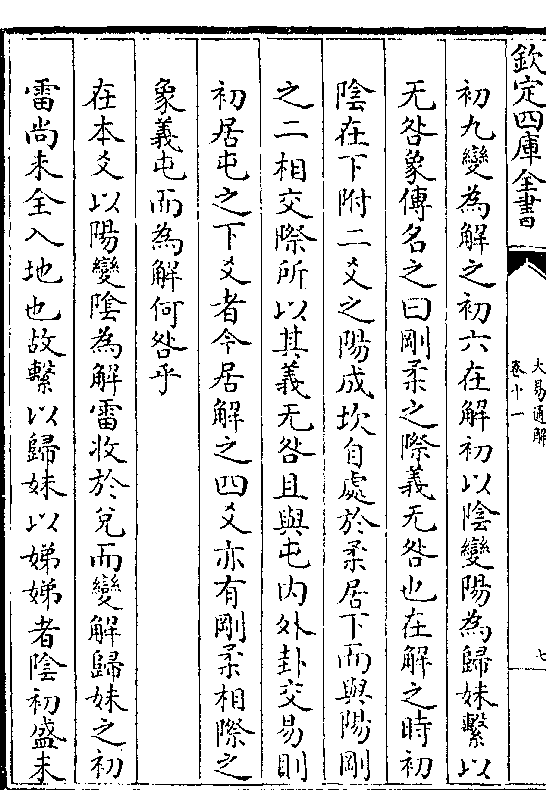 欽定四庫全書
大易通解
卷十一
七
初九變為解之初六在解初以陰變陽為歸妹繫以
无咎象傳名之曰剛柔之際義无咎也在解之時初
陰在下附二爻之陽成坎自處於柔居下而與陽剛
之二相交際所以其義无咎且與屯内外卦交易則
初居屯之下爻者今居解之四爻亦有剛柔相際之
象義屯而為解何咎乎
在本爻以陽變隂為解雷收於兌而變解歸妹之初
雷尚未全入地也故繫以歸妹以娣娣者陰初盛未